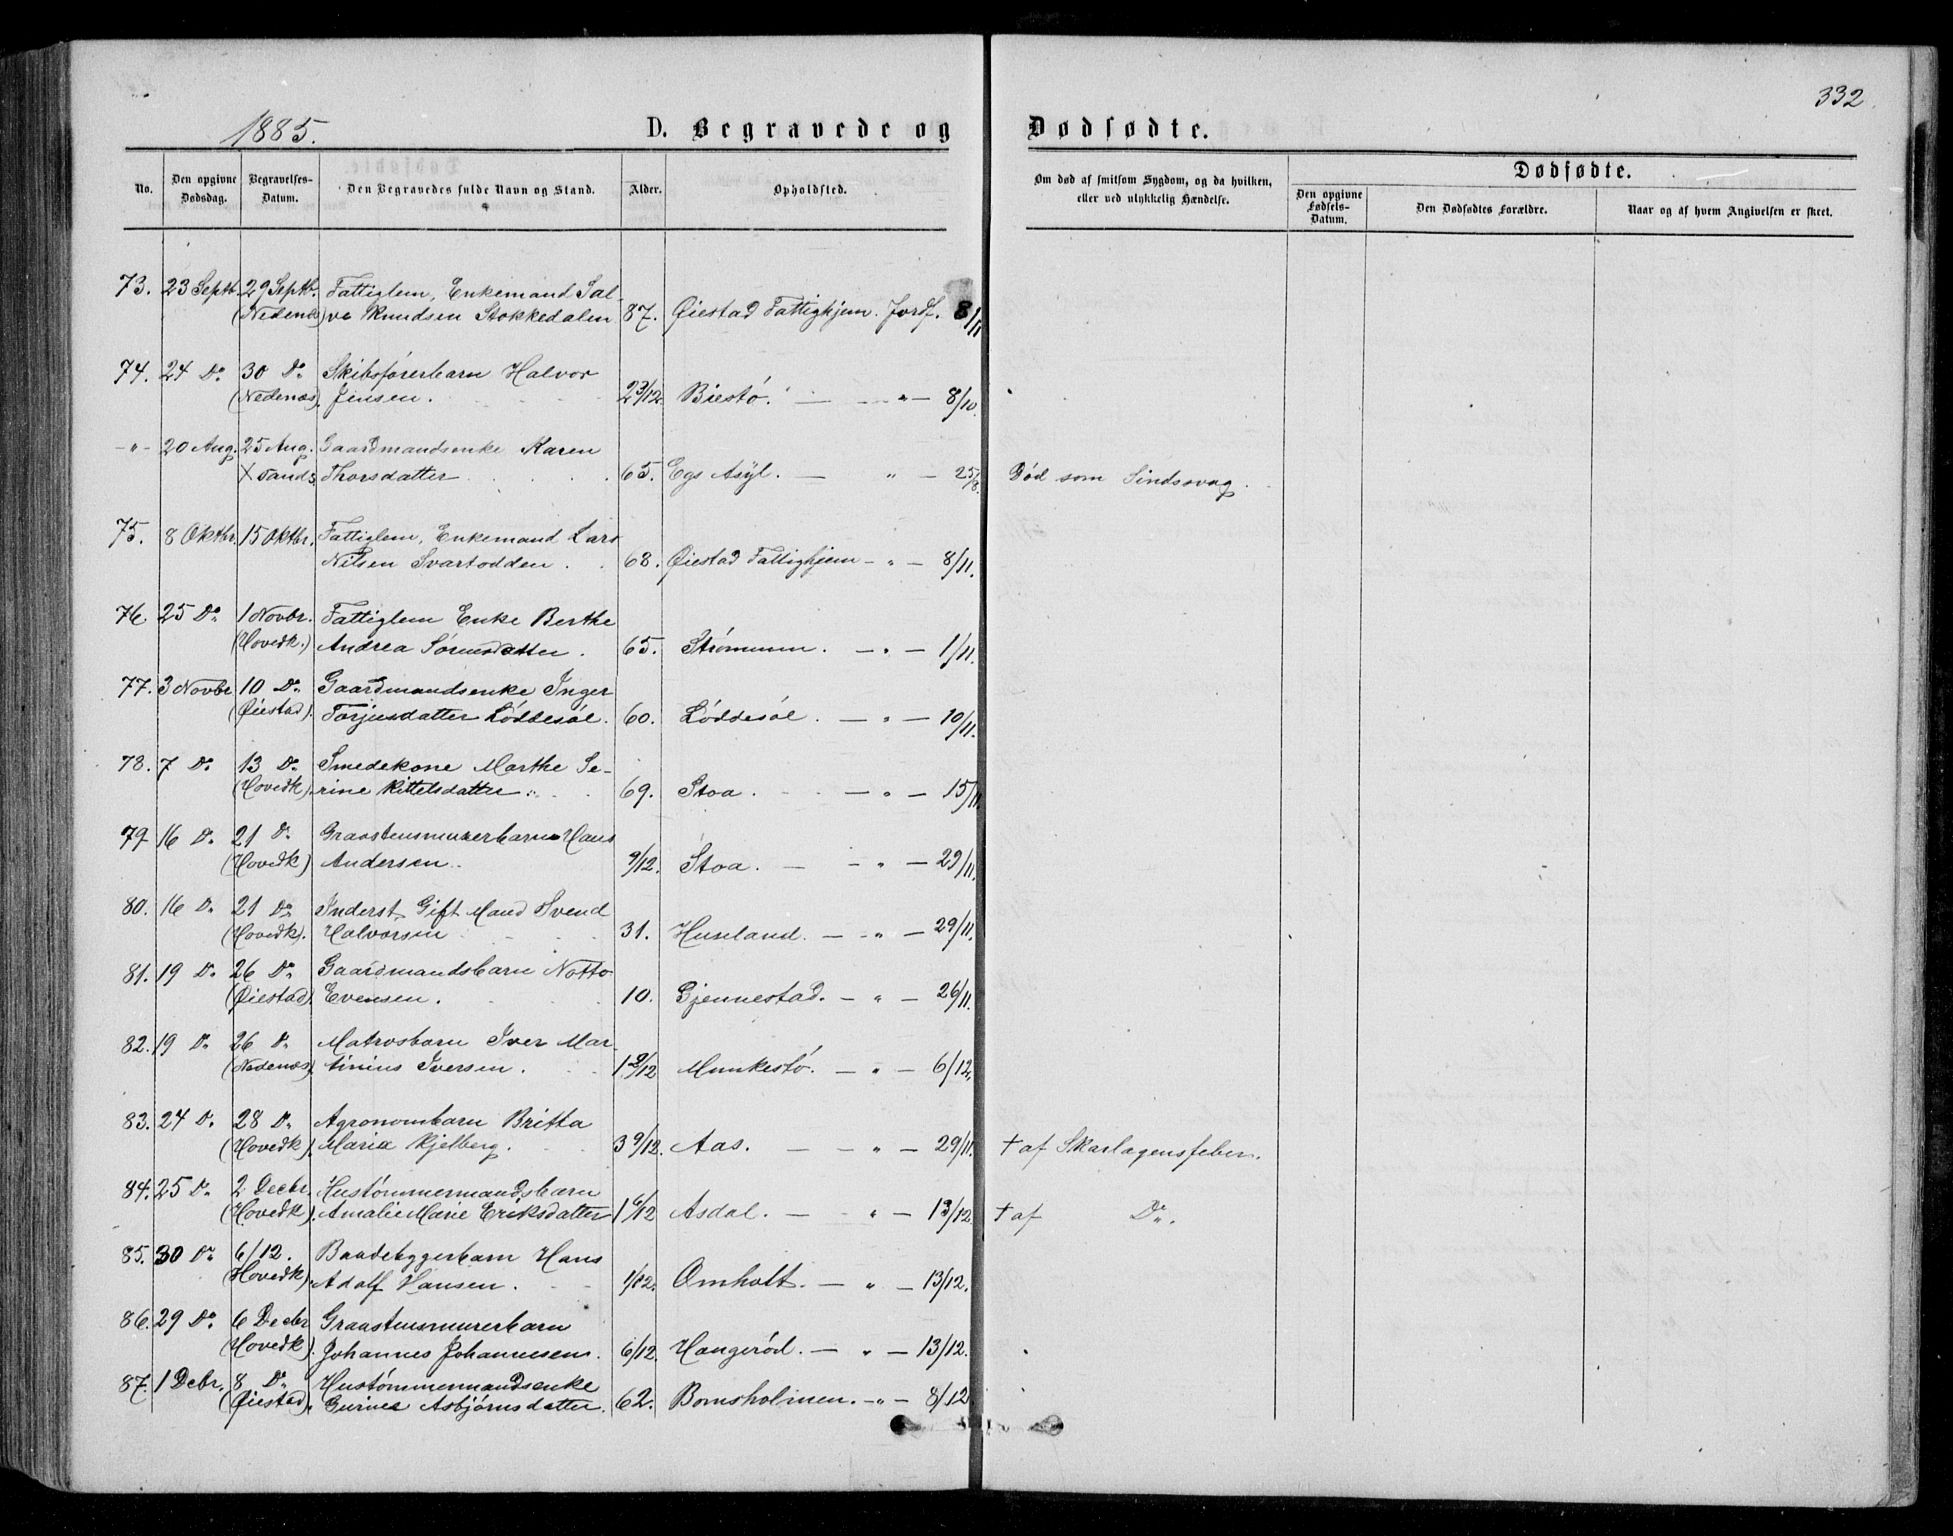 332
1885.
D. Begravede og Dødfødte.
No.
Den opgivne Dødsdag.
Begravelses-Datum.
Den Begravedes fulde Navn og Stand.
Alder.
Opholdsted.
Om død af smitsom Sygdom, og da hvilken, eller ved ulykkelig Hændelse.
Dødfødte.
Den opgivne Fødsels-Datum.
Den Dødfødtes Forældre.
Naar og af hvem Angivelsen er skeet.
73. 23 Septb. 29 Septbr. Fattiglem, Enkemand Sal-
(Nedenæs) ve Knudsen Stokkedalen 87. Øiestad Fattighjem. Jordf. 8/11
74. 24 Do. 30 Do. Skibsførerbarn Halvor
(Nedenæs). Jensen. 2 3/12. Biestø. — " — 8/10.
-"- 20 Aug. 25 Aug. Gaardmandsenke Karen
X Sands. Thorsdatter 65. Egs Asyl. — " — 25/8. Død som Sindssvag.
75. 8 Oktbr. 15 Oktbr. Fattiglem, Enkemand Lars
Nilsen Svartodden. 68. Øiestad Fattighjem — " — 8/11.
76. 25 Do. 1 Novbr. Fattiglem Enke Berthe
(Hovedk.) Andrea Sørensdatter. 65. Strømmen. — " — 1/11.
77. 3 Novbr 10 Do. Gaardmandsenke Inger
(Øiestad). Torjusdatter Løddesøl. 60. Løddesøl. — " — 10/11.
78. 7 Do. 13 Do. Smedekone Marthe Se-
(Hovedk). rine Kittelsdatter. 69. Stoa. — " — 15/11
79 16 Do. 21 Do. Graastensmurerbarn Hans
(Hovedk) Andersen. 9/12. Stoa. — " — 29/11.
80. 16 Do. 21 Do. Inderst Gift Mand Svend
(Hovedk). Halvorsen 31. Huseland. — " — 29/11.
81. 19 Do. 26 Do. Gaardmandsbarn Notto
(Øiestad). Evensen. 10. Gjennestad. — " — 26/11.
82. 19 Do. 26 Do. Matrosbarn Iver Mar-
(Nedenæs). tinius Iversen. 1 9/12 Munkestø. — " — 6/12.
83. 24 Do. 28 Do. Agronombarn Britta
(Hovedk). Maria Kjelberg. 3 9/12. Aas. — " — 29/11. † af Skarlagensfeber.
84. 25 Do. 2 Decbr. Hustømmermandsbarn
(Hovedk). Amalie Marie Eriksdatter 1 6/12 Asdal. — " — 13/12. † af Do.
85. 30 Do. 6/12. Baadebyggerbarn Hans
(Hovedk). Adolf Hansen. 1/12. Omholt. — " — 13/12.
86. 29 Do. 6 Decbr Graastensmurerbarn
(Hovedk). Johannes Johannesen. 6/12. Hangerød. — " — 13/12.
87. 1 Decbr. 8 Do. Hustømmermandsenke
(Øiestad). Gurine Asbjørnsdatter. 62. Bomsholmen. — " — 8/12.